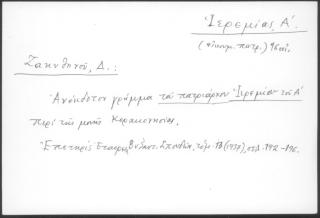 Ἱερεμίας, Α΄.
(Οἰκουμ. πατρ.) 16 αἰ.
Ζακυθηνοῦ, Δ. :
Ἀνέκδοτον γράμμα τοῦ πατριάρχου Ἱερεμίου τοῦ Α΄
περὶ τῆς μονῆς
Ἐπετηρὶς Ἑταιρ. Βυζαντ. Σπουδῶν, τόμ. ΙΒ (1937), σελ. 192-196.